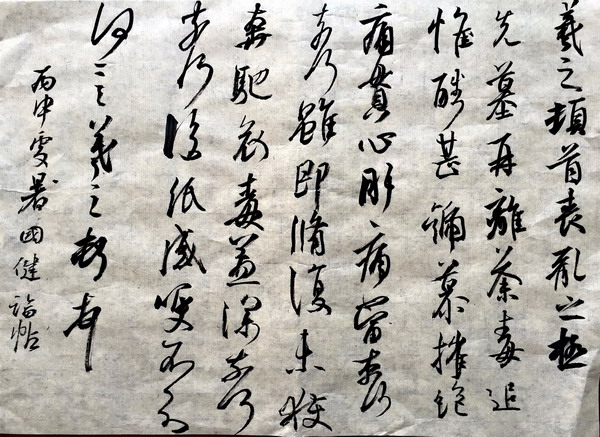 羲之頓首喪亂之極
先墓再離荼毒追
惟酷甚號慕摧絕
痛貫心肝痛當奈何
奈何雖即脩復未獲
奔馳哀毒益深奈何
奈何臨紙感哽不知
何言羲之頓首頓首
丙申處暑國健臨帖